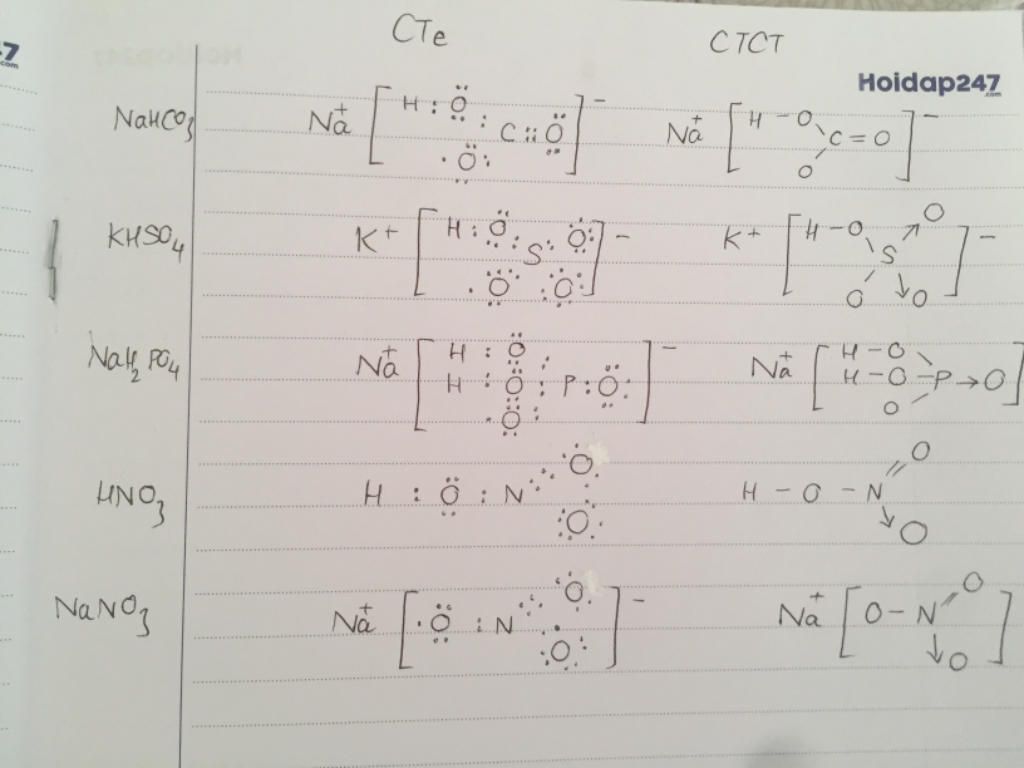 7
.com
CTe CTCT
Hoidap247
.com
NaHCO3 Na+ [H : O : C :: O O]− Na+ [H − O C = O O]−
KHSO4 K+ [H : O : S : O O O]− K+ [H − O S → O O → O]−
NaH2PO4 Na+ [H : O H : O : P : O O]− Na+ [H − O H − O − P → O O]
HNO3 H : O : N :: O : O H − O − N = O → O
NaNO3 Na+ [O : N :: O : O]− Na+ [O − N = O → O]